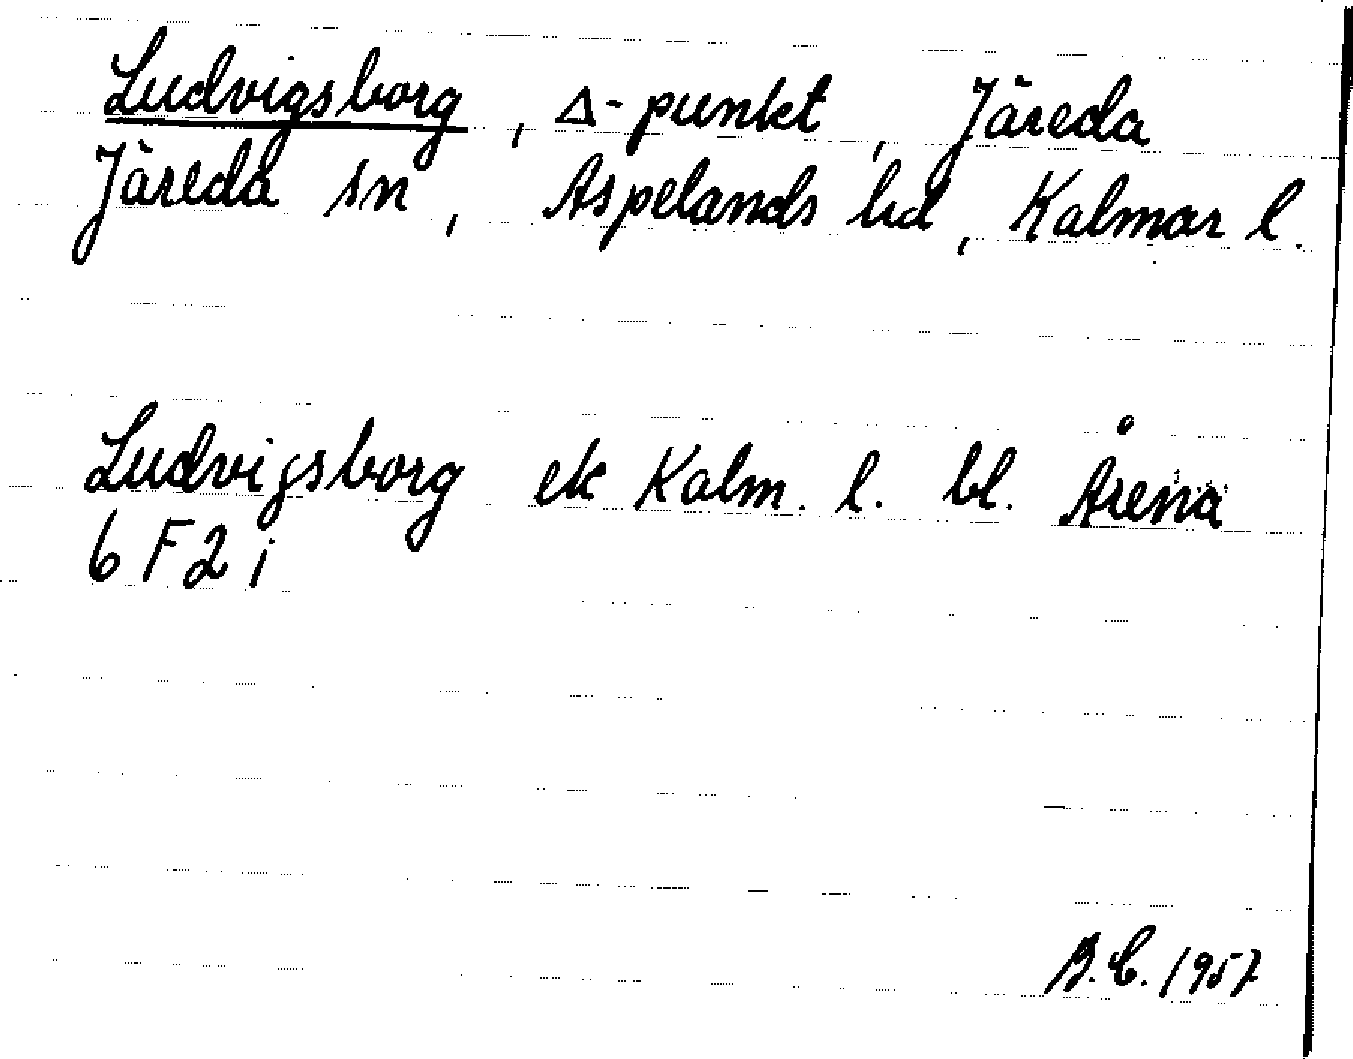 Ludvigsborg, Δ-punkt, Järeda
Järeda sn, Aspelands hd, Kalmar l.
Ludvigsborg ek Kalm. l. bl. Årena
6 F 2 i
B.E. 1957